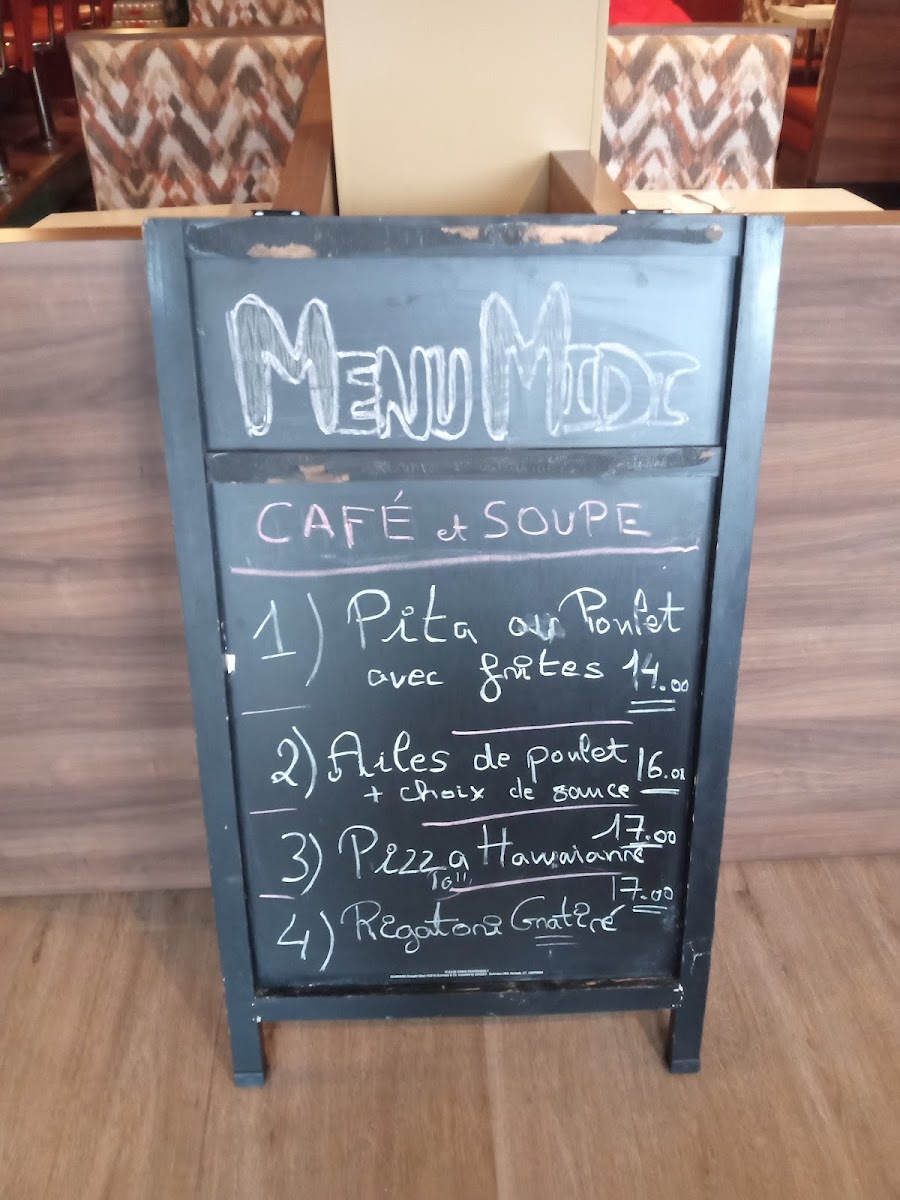 MENU MIDI
CAFÉ et SOUPE
1) Pita au Poulet
avec frites 14.00
2) Ailes de poulet 16.00
+ choix de sauce
17.00
3) Pizza Hawaianne
10"
17.00
4) Rigatoni Gratiné